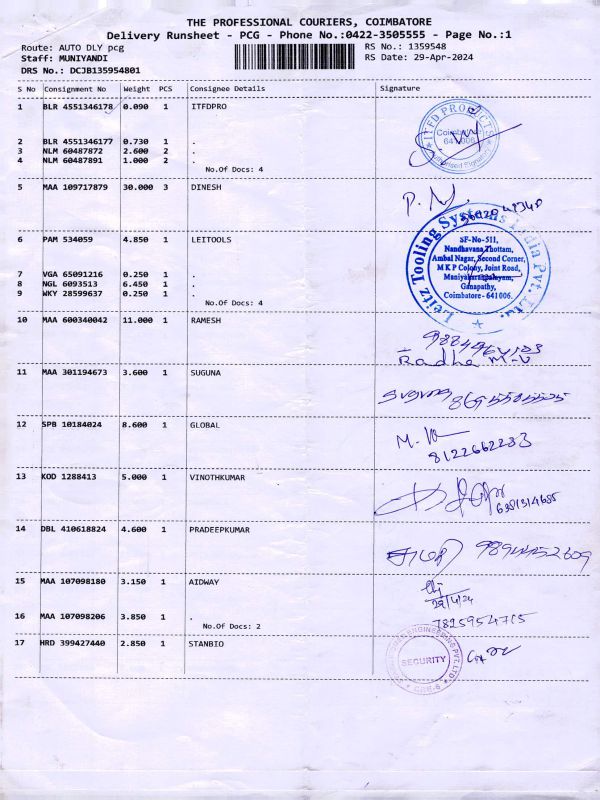 THE PROFESSIONAL COURIERS, COIMBATORE
Delivery Runsheet - PCG - Phone No.:0422-3505555 - Page No.:1
Route: AUTO DLY pcg RS No.: 1359548
Staff: MUNIYANDI RS Date: 29-Apr-2024
DRS No.: DCJB135954801
S No Consignment No Weight PCS Consignee Details Signature
1 BLR 4551346178 0.090 1 ITFDPRO
ITFD PRODUCTS
Coimbatore
641006
Authorised Signatory
2 BLR 4551346177 0.730 1 .
3 NLM 60487872 2.600 2 .
4 NLM 60487891 1.000 2 .
No.Of Docs: 4
5 MAA 109717879 30.000 3 DINESH
6 PAM 534059 4.850 1 LEITOOLS
Leitz Tooling Systems India Pvt. Ltd.
SF-No-511,
Nandhavana Thottam,
Ambal Nagar, Second Corner,
M K P Colony, Joint Road,
Maniyakarampalayam,
Ganapathy,
Coimbatore - 641006.
7 VGA 65091216 0.250 1 .
8 NGL 6093513 6.450 1 .
9 WKY 28599637 0.250 1 .
No.Of Docs: 4
10 MAA 600340042 11.000 1 RAMESH
Radha M-V
11 MAA 301194673 3.600 1 SUGUNA
suguna
12 SPB 10184024 8.600 1 GLOBAL
8122662233
13 KOD 1288413 5.000 1 VINOTHKUMAR
14 DBL 410618824 4.600 1 PRADEEPKUMAR
9894452609
15 MAA 107098180 3.150 1 AIDWAY
29/4/24
16 MAA 107098206 3.850 1 .
No.Of Docs: 2
17 HRD 399427440 2.850 1 STANBIO
SECURITY